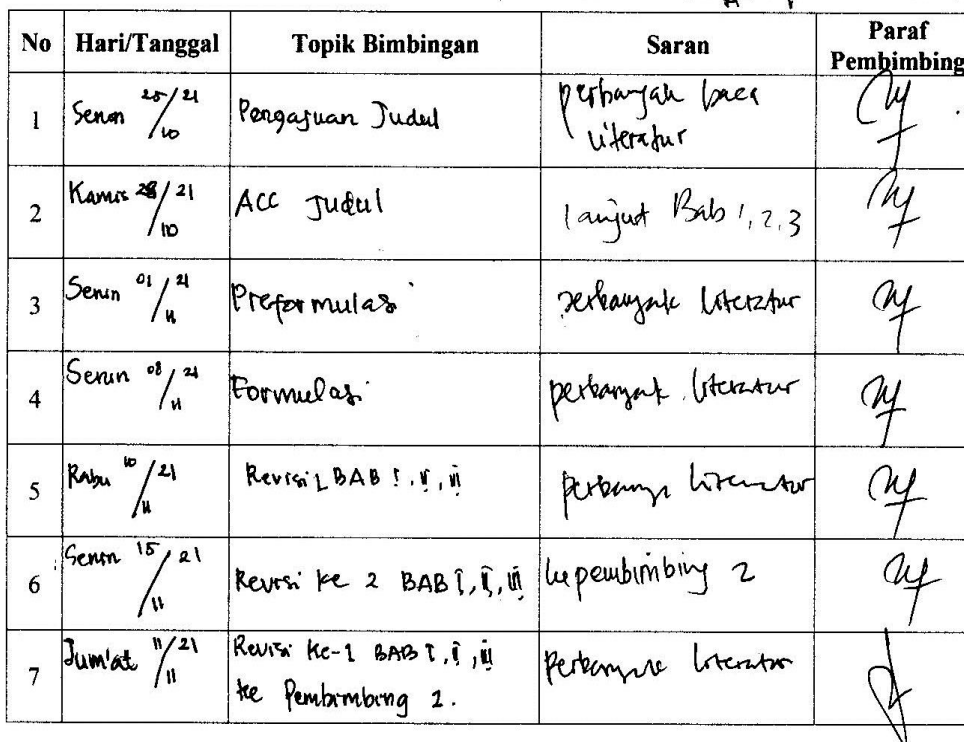 No Hari/Tanggal Topik Bimbingan Saran Paraf
Pembimbing
1 Senin 25/10 21 Pengajuan Judul perbanyak baca
literatur
2 Kamis 28/10 21 ACC Judul lanjut Bab 1, 2, 3
3 Senin 01/11 21 Preformulasi perbanyak literatur
4 Senin 08/11 21 Formulasi perbanyak literatur
5 Rabu 10/11 21 Revisi 1 BAB I, II, III literatur
6 Senin 15/11 21 Revisi ke 2 BAB I, II, III ke pembimbing 2
7 Jum'at 11/11 21 Revisi Ke-1 BAB I, II, III Perbanyak literatur
ke Pembimbing 2.